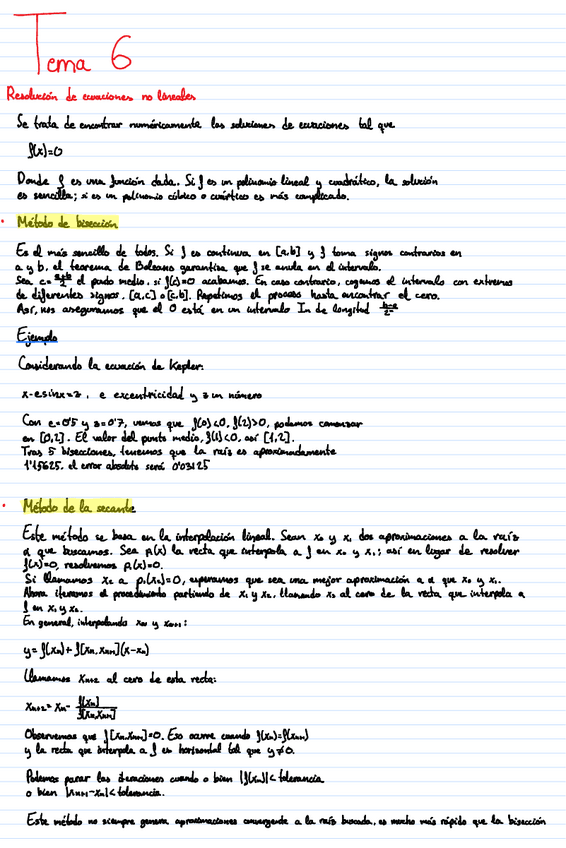 Tema 6
Resolución de ecuaciones no lineales
Se trata de encontrar numéricamente las soluciones de ecuaciones tal que
f(x)=0
Donde f es una función dada. Si f es un polinomio lineal y cuadrático, la solución
es sencilla; si es un polinomio cúbico o cuártico es más complicado.
• Método de bisección
Es el más sencillo de todos. Si f es continua en [a,b] y f toma signos contrarios en
a y b, el teorema de Bolzano garantiza que f se anula en el intervalo.
Sea c= a+b/2 el punto medio, si f(c)=0 acabamos. En caso contrario, cogemos el intervalo con extremos
de diferentes signos, [a,c] o [c,b]. Repetimos el proceso hasta encontrar el cero.
Así, nos aseguramos que el 0 está en un intervalo In de longitud
Ejemplo
Considerando la ecuación de Kepler:
x-esinx=z, e excentricidad y z un número
Con e=0'5 y z=0'7, vemos que f(0)<0, f(2)>0, podemos comenzar
en [0,2]. El valor del punto medio, f(1)<0, así [1,2].
Tras 5 bisecciones, tenemos que la raíz es aproximadamente
1'15625, el error absoluto será 0'03125
• Método de la secante
Este método se basa en la interpolación lineal. Sean x₀ y x₁ dos aproximaciones a la raíz
α que buscamos. Sea p₁(x) la recta que interpola a f en x₀ y x₁; así en lugar de resolver
f(x)=0, resolvemos p₁(x)=0.
Si llamamos x₂ a p₁(x₂)=0, esperamos que sea una mejor aproximación a α que x₀ y x₁.
Ahora iteramos el procedimiento partiendo de x₁ y x₂, llamando x₃ al cero de la recta que interpola a
f en x₁ y x₂.
En general, interpolando xₙ y xₙ₊₁:
y=f(xₙ)+f[xₙ,xₙ₊₁](x-xₙ)
Llamamos xₙ₊₂ al cero de esta recta:
xₙ₊₂=xₙ- f(xₙ)/f[xₙ,xₙ₊₁]
Observemos que f[xₙ,xₙ₊₁]=0. Eso ocurre cuando f(xₙ)=f(xₙ₊₁)
y la recta que interpola a f es horizontal tal que y≠0.
Podemos parar las iteraciones cuando o bien |f(xₙ)|<tolerancia
o bien |xₙ₊₁-xₙ|<tolerancia.
Este método no siempre genera aproximaciones convergente a la raíz buscada, es mucho más rápido que la bisección